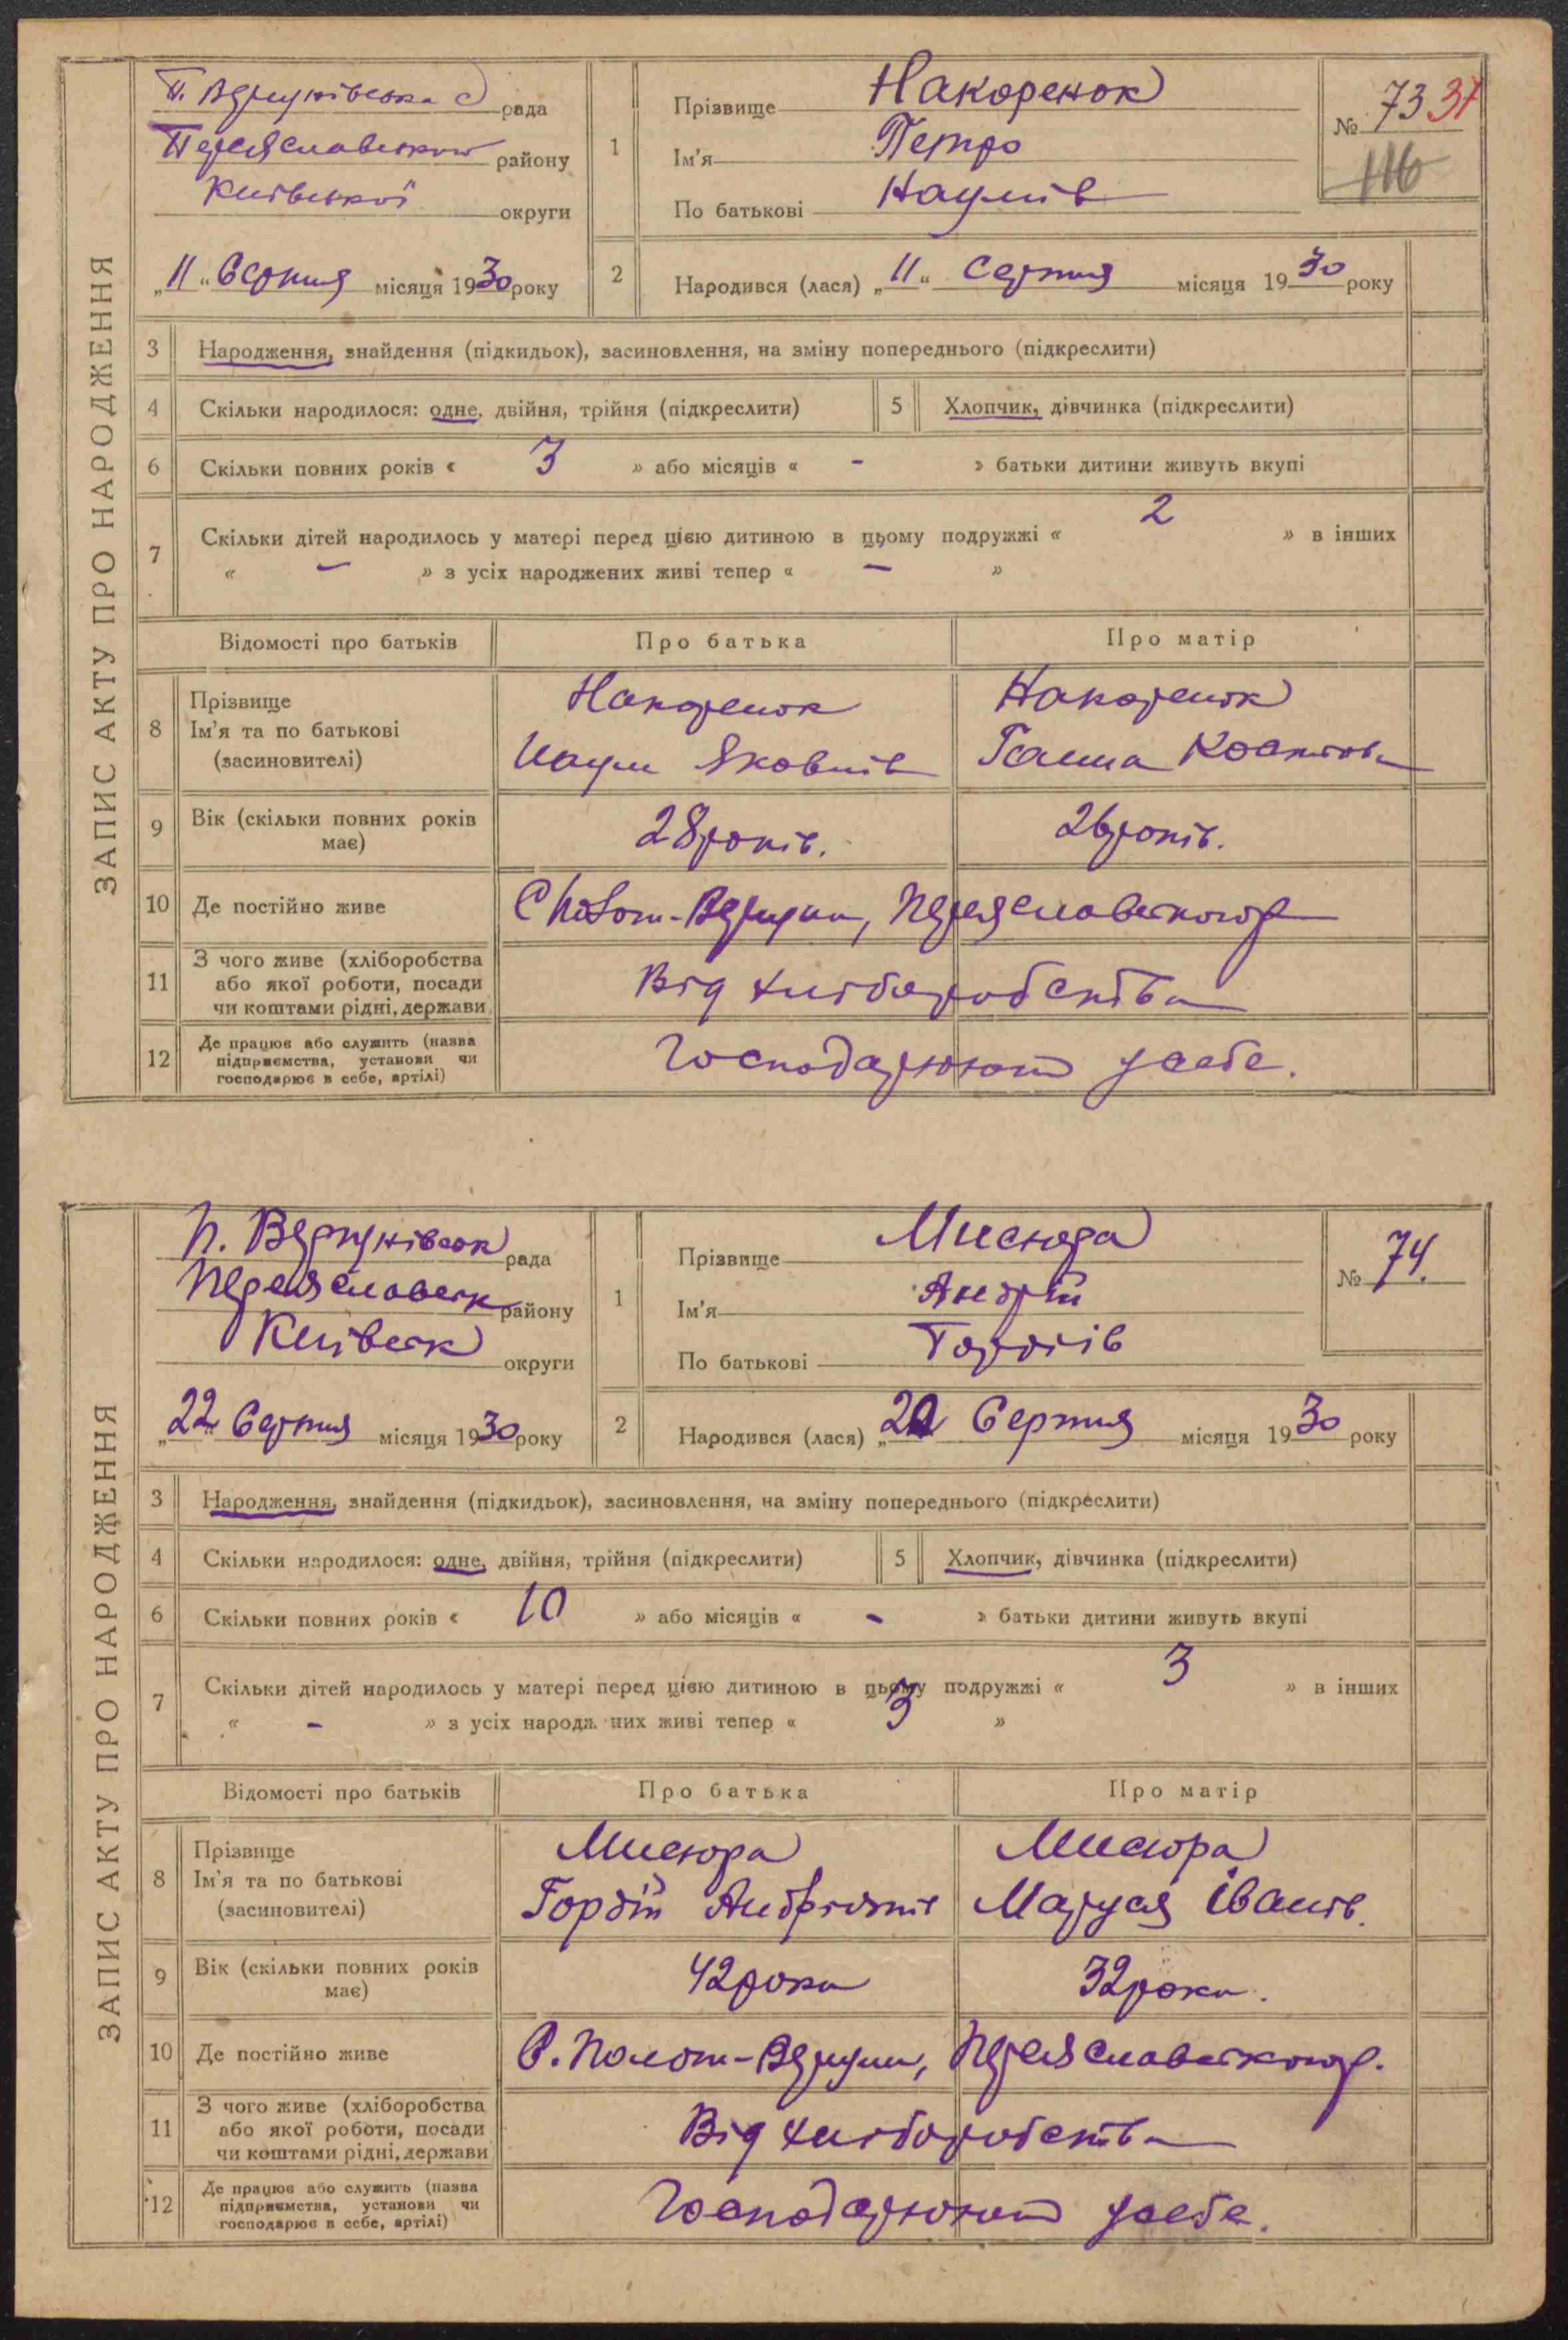 ЗАПИС АКТУ ПРО НАРОДЖЕННЯ
П. Вергунівська с рада
Переяславського району
Київської округи
„11“ Серпня місяця 1930 року
1 Прізвище Накоренок
Ім'я Петро
По батькові Наумів
№ 73 37
116
2 Народився (лася) „11“ Серпня місяця 1930 року
3 Народження, знайдення (підкидьок), засиновлення, на зміну попереднього (підкреслити)
4 Скільки народилося: одне, двійня, трійня (підкреслити) 5 Хлопчик, дівчинка (підкреслити)
6 Скільки повних років « 3 » або місяців « - » батьки дитини живуть вкупі
7 Скільки дітей народилось у матері перед цією дитиною в цьому подружжі « 2 » в інших
« – » з усіх народжених живі тепер « – »
Відомості про батьків Про батька Про матір
8 Прізвище Накоренок Накоренок
Ім'я та по батькові Наум Яковлів Ганна
(засиновителі)
9 Вік (скільки повних років має) 28 років. 26 років.
10 Де постійно живе Переяславського р
11 З чого живе (хліборобства або якої роботи, посади чи коштами рідні, держави Від хліборобства
12 Де працює або служить (назва підприємства, установи чи господарює в себе, артілі) Господарюють усебе.
ЗАПИС АКТУ ПРО НАРОДЖЕННЯ
П. Вергунівськ рада
Переяславськ району
Київськ округи
„22“ Серпня місяця 1930 року
1 Прізвище Мисюра
Ім'я Андрій
По батькові Гордіїв
№ 74.
2 Народився (лася) Серпня місяця 1930 року
3 Народження, знайдення (підкидьок), засиновлення, на зміну попереднього (підкреслити)
4 Скільки народилося: одне, двійня, трійня (підкреслити) 5 Хлопчик, дівчинка (підкреслити)
6 Скільки повних років « 10 » або місяців « - » батьки дитини живуть вкупі
7 Скільки дітей народилось у матері перед цією дитиною в цьому подружжі « 3 » в інших
« – » з усіх народжених живі тепер « 3 »
Відомості про батьків Про батька Про матір
8 Прізвище Мисюра Мисюра
Ім'я та по батькові Гордій Маруся Іванів.
(засиновителі)
9 Вік (скільки повних років має) 42 роки 32 роки.
10 Де постійно живе С. Полог-Вергуни, Переяславського р.
11 З чого живе (хліборобства або якої роботи, посади чи коштами рідні, держави Від хліборобства
12 Де працює або служить (назва підприємства, установи чи господарює в себе, артілі) Господарюють усебе.